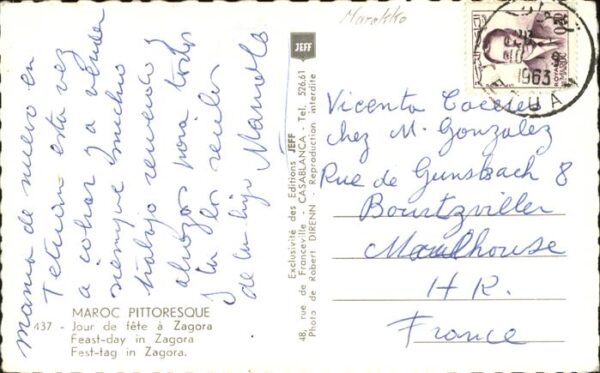 Marokko
mama de nuevo en
Tetuán esta vez
a cobrar y a vender
siempre mucho
trabajo recuerdo y
abrazos para todos
y tu los recibes
de tu hijo Manolo
MAROC PITTORESQUE
437 - Jour de fête à Zagora
Feast-day in Zagora
Fest-tag in Zagora.
JEFF
Exclusivité des Editions JEFF
48, rue de Franceville - CASABLANCA - Tel. 526.61
Photo de Robert DIRENN - Reproduction interdite
1963
MAROC
Vicenta
chez M. Gonzalez
Rue de Gunsbach 8
Bourtzviller
Moulhouse
H R.
France